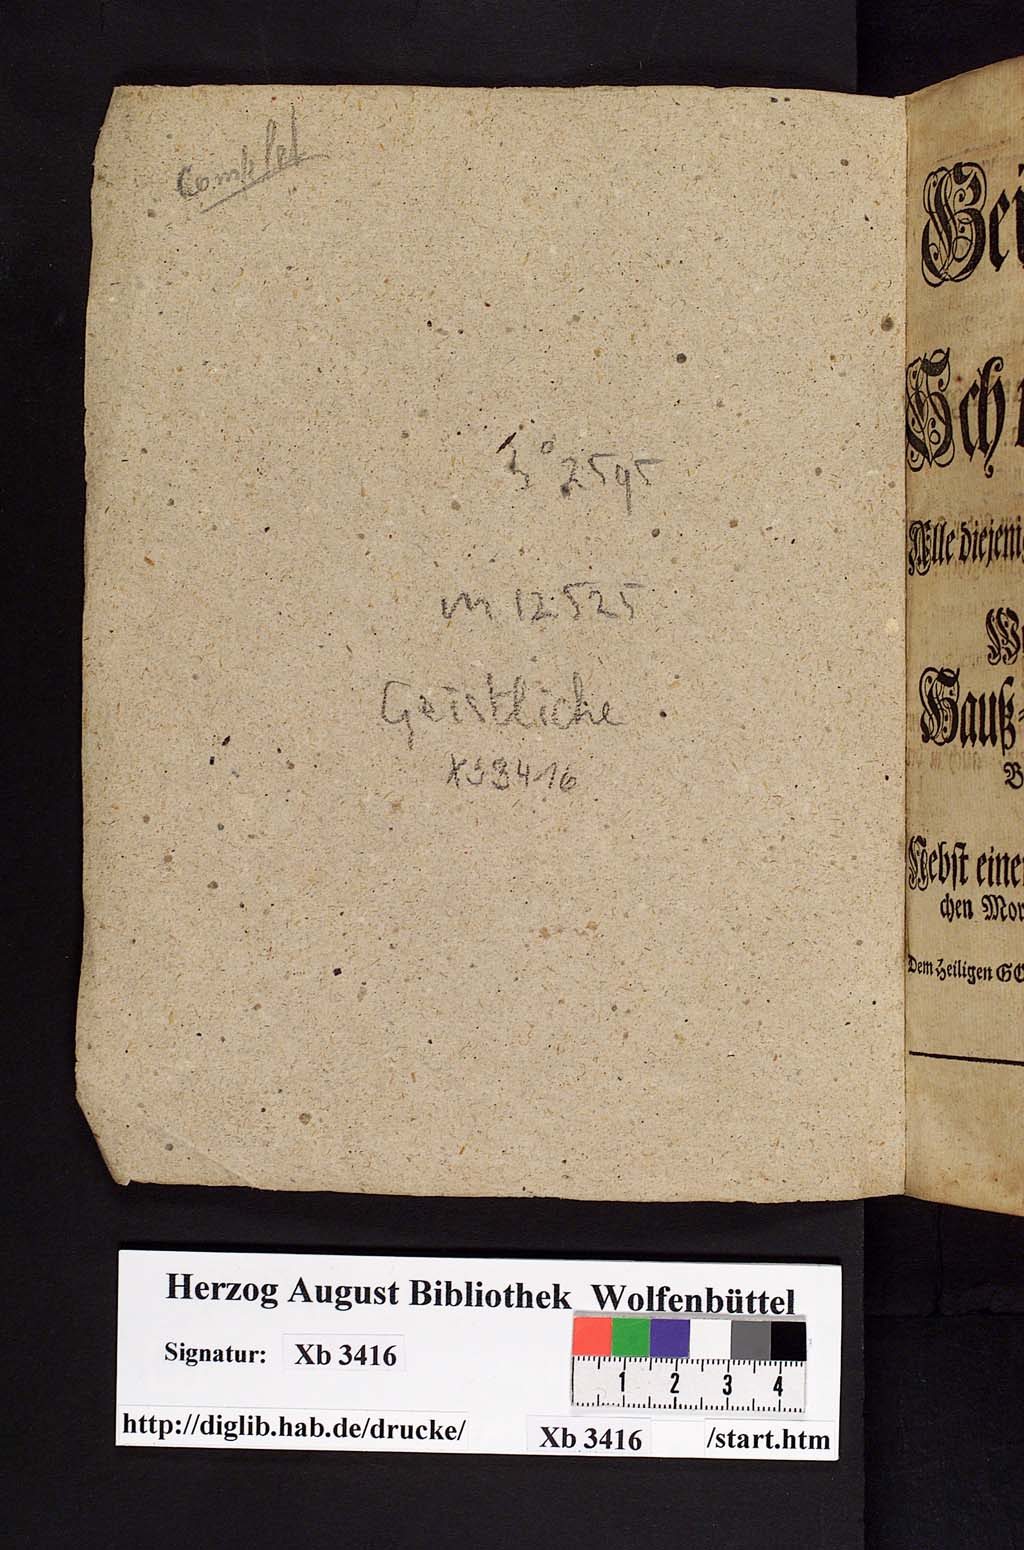 complet
2595
m 12525
Geistliche
Xb 3416
Gei
Sch
Alle diejeni
Hauß-
Nebst eine
chen Mor
Dem Heiligen GO
Herzog August Bibliothek Wolfenbüttel
Signatur: Xb 3416
1 2 3 4
http://diglib.hab.de/drucke/ Xb 3416 /start.htm